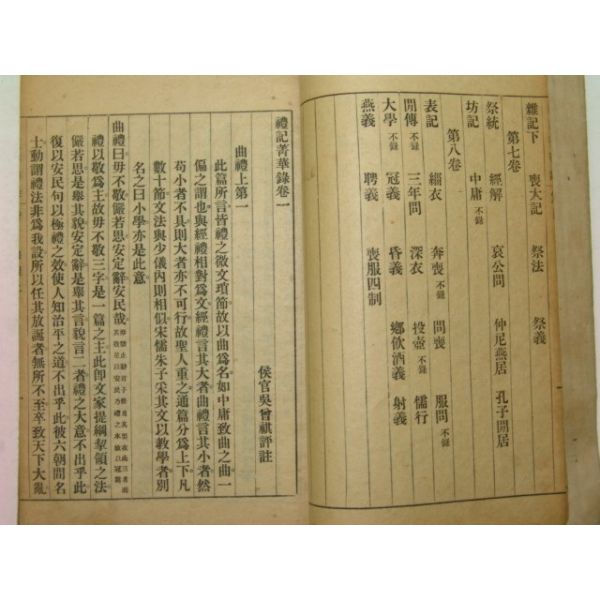 雜記下　喪大記　祭法　祭義
第七卷
祭統　經解　哀公問　仲尼燕居　孔子閒居
坊記　中庸不錄
第八卷
表記　緇衣　奔喪不錄　問喪　服問不錄
閒傳不錄　三年問　深衣　投壺不錄　儒行
大學不錄　冠義　昏義　鄉飲酒義　射義
燕義　聘義　喪服四制
禮記菁華錄卷一
侯官吳曾祺評註
曲禮上第一
此篇所言皆禮之微文瑣節故以曲爲名如中庸致曲之曲一
偏之謂也與經禮相對爲文經禮言其大者曲禮言其小者然
苟小者不具則大者亦不可行故聖人重之通篇分爲上下凡
數十節文法與少儀內則相似宋儒朱子采其文以敎學者別
名之曰小學亦是此意
曲禮曰毋不敬儼若思安定辭安民哉
禮以敬爲主故毋不敬三字是一篇之主此卽文家提綱挈領之法
儼若思是舉其貌安定辭是舉其言貌言二者禮之大意不出乎此
復以安民句以極禮之效使人知治平之道不出乎此彼六朝間名
士動謂禮法非爲我設所以任其放誕者無所不至卒致天下大亂